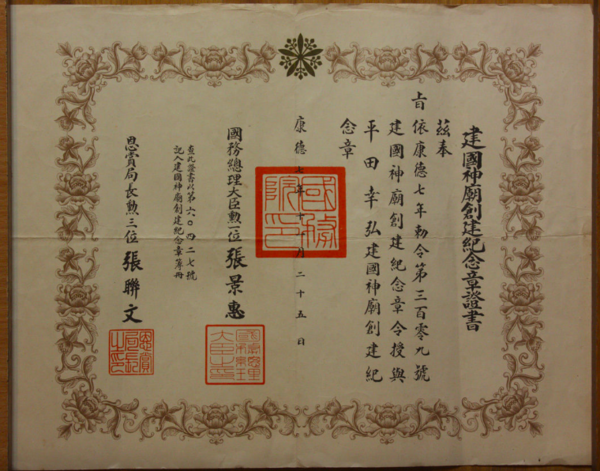 建國神廟創建紀念章證書
茲奉
旨依康德七年勅令第三百零九號
建國神廟創建紀念章令授與
平田幸弘建國神廟創建紀
念章
康德七年十一月二十五日
國務院印
國務總理大臣勳一位張景惠
查此證書以第六〇四二七號
記入建國神廟創建紀念章簿冊
恩賞局長勳三位張聯文
恩賞局長之印